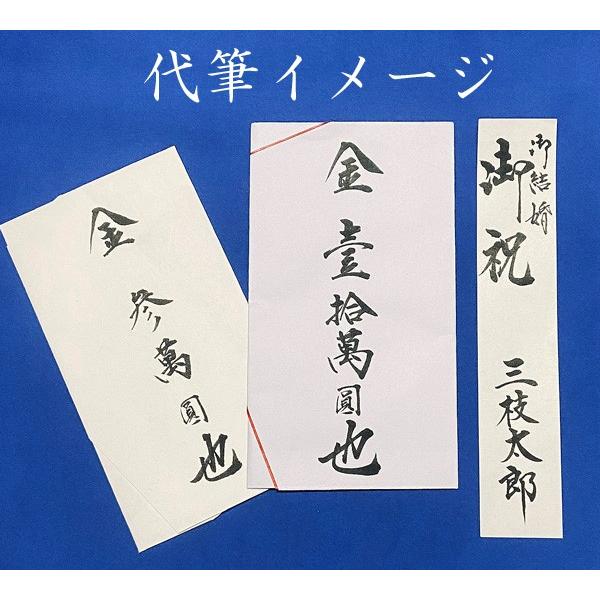 代筆イメージ
金 参萬圓也
金 壹拾萬圓也
御結婚
御祝
三枝太郎